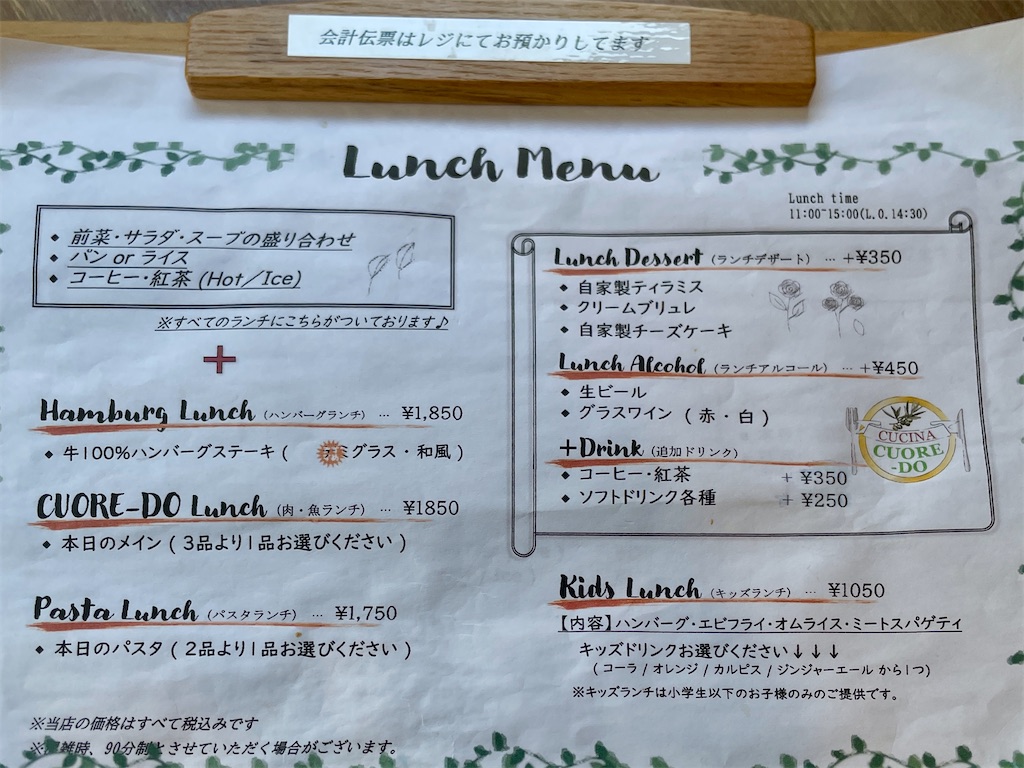 会計伝票はレジにてお預かりしてます
Lunch Menu
Lunch time
11:00~15:00(L.O.14:30)
◆ 前菜・サラダ・スープの盛り合わせ
◆ パン or ライス
◆ コーヒー・紅茶 (Hot/Ice)
※すべてのランチにこちらがついております♪
+
Hamburg Lunch (ハンバーグランチ) … ¥1,850
◆ 牛100%ハンバーグステーキ ( デミグラス・和風 )
CUORE-DO Lunch (肉・魚ランチ) … ¥1850
◆ 本日のメイン ( 3品より1品お選びください )
Pasta Lunch (パスタランチ) … ¥1,750
◆ 本日のパスタ ( 2品より1品お選びください )
※当店の価格はすべて税込みです
雑時、90分制とさせていただく場合がございます。
Lunch Dessert (ランチデザート) … +¥350
◆ 自家製ティラミス
◆ クリームブリュレ
◆ 自家製チーズケーキ
Lunch Alcohol (ランチアルコール) … +¥450
◆ 生ビール
◆ グラスワイン ( 赤・白 )
+Drink (追加ドリンク)
◆ コーヒー・紅茶 + ¥350
◆ ソフトドリンク各種 + ¥250
CUCINA
CUORE
-DO
Kids Lunch (キッズランチ) … ¥1050
【内容】ハンバーグ・エビフライ・オムライス・ミートスパゲティ
キッズドリンクお選びください↓↓↓
( コーラ / オレンジ / カルピス / ジンジャーエール から1つ)
※キッズランチは小学生以下のお子様のみのご提供です。